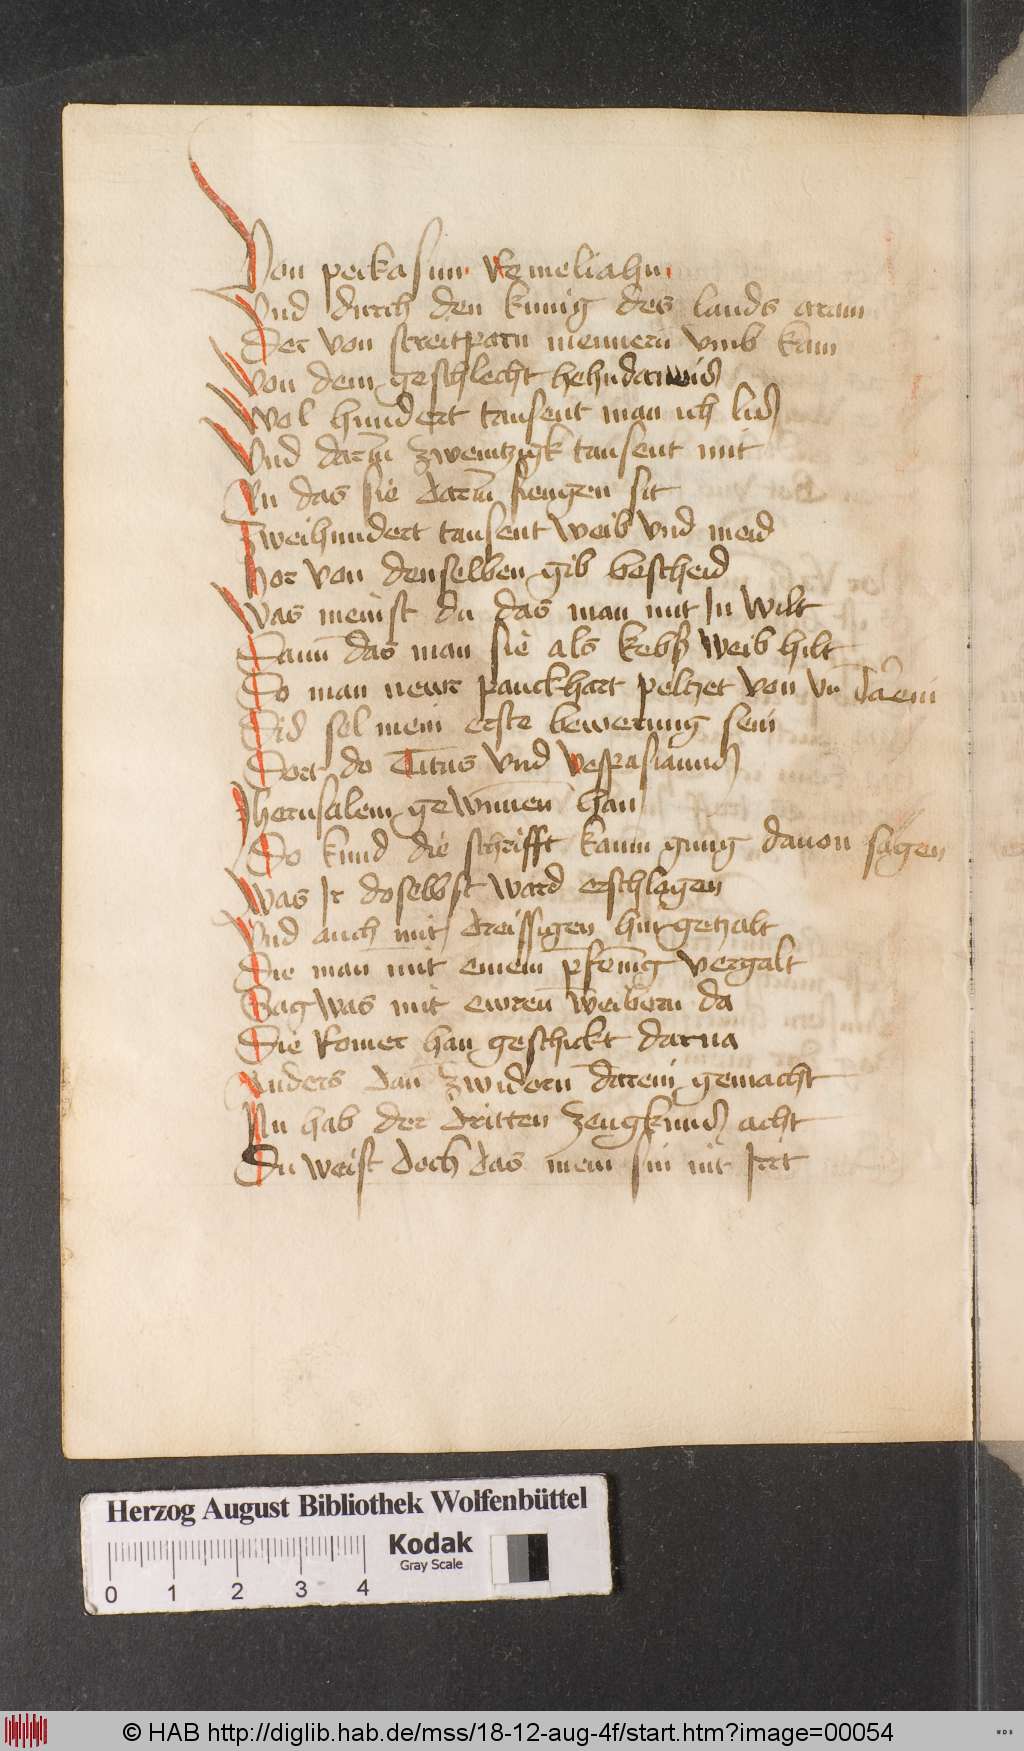 Von peckasim Remeliahn
Vnd durch den kunig des lands aram
Der von streitparn mennern vmb kam
Von dem geschlecht behudawid
Wol hundert tausent man ich lid
Vnd darin zwentzigk tausent mit
An das sie darin fiengen sit
Zweihundert tausent weib vnd meid
Hor von denselben gib bescheid
Was meinst du das man mit In wilt
Dann das man sie als kebß weib hilt
Do man newr panckhart peltzet von
Did sol mein erste bewerung sein
Dort do Titus vnd vespasianus
Jherusalem gewinnen han
Do kund die schrifft kaum gnug dauon sagen
Was Ir doselbst ward erschlagen
Vnd auch mit dreissigen hin getzalt
Die man mit einem pfenig vergalt
Sag was mit ewren weibern da
Die Romer han geschickt darna
Anders dan zwidern darein gemacht
Nu hab der dritten zeugknuß acht
Du weist doch das mein sin nit Irrt
Herzog August Bibliothek Wolfenbüttel
Kodak
Gray Scale
0 1 2 3 4
© HAB http://diglib.hab.de/mss/18-12-aug-4f/start.htm?image=00054